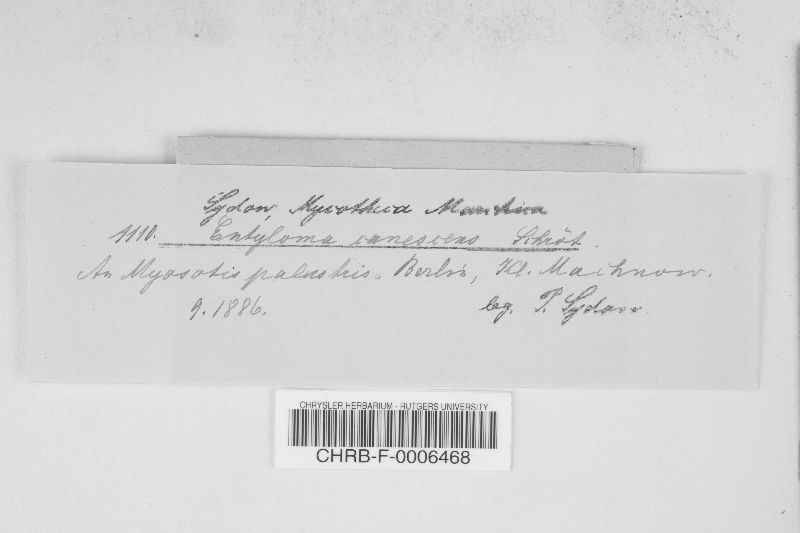 Sydow, Mycotheca Marchica
1110. Entyloma canescens Schröt.
An Myosotis palustris. Berlin, Kl. Machnow.
9. 1886. leg. P. Sydow.
CHRYSLER HERBARIUM - RUTGERS UNIVERSITY
CHRB-F-0006468